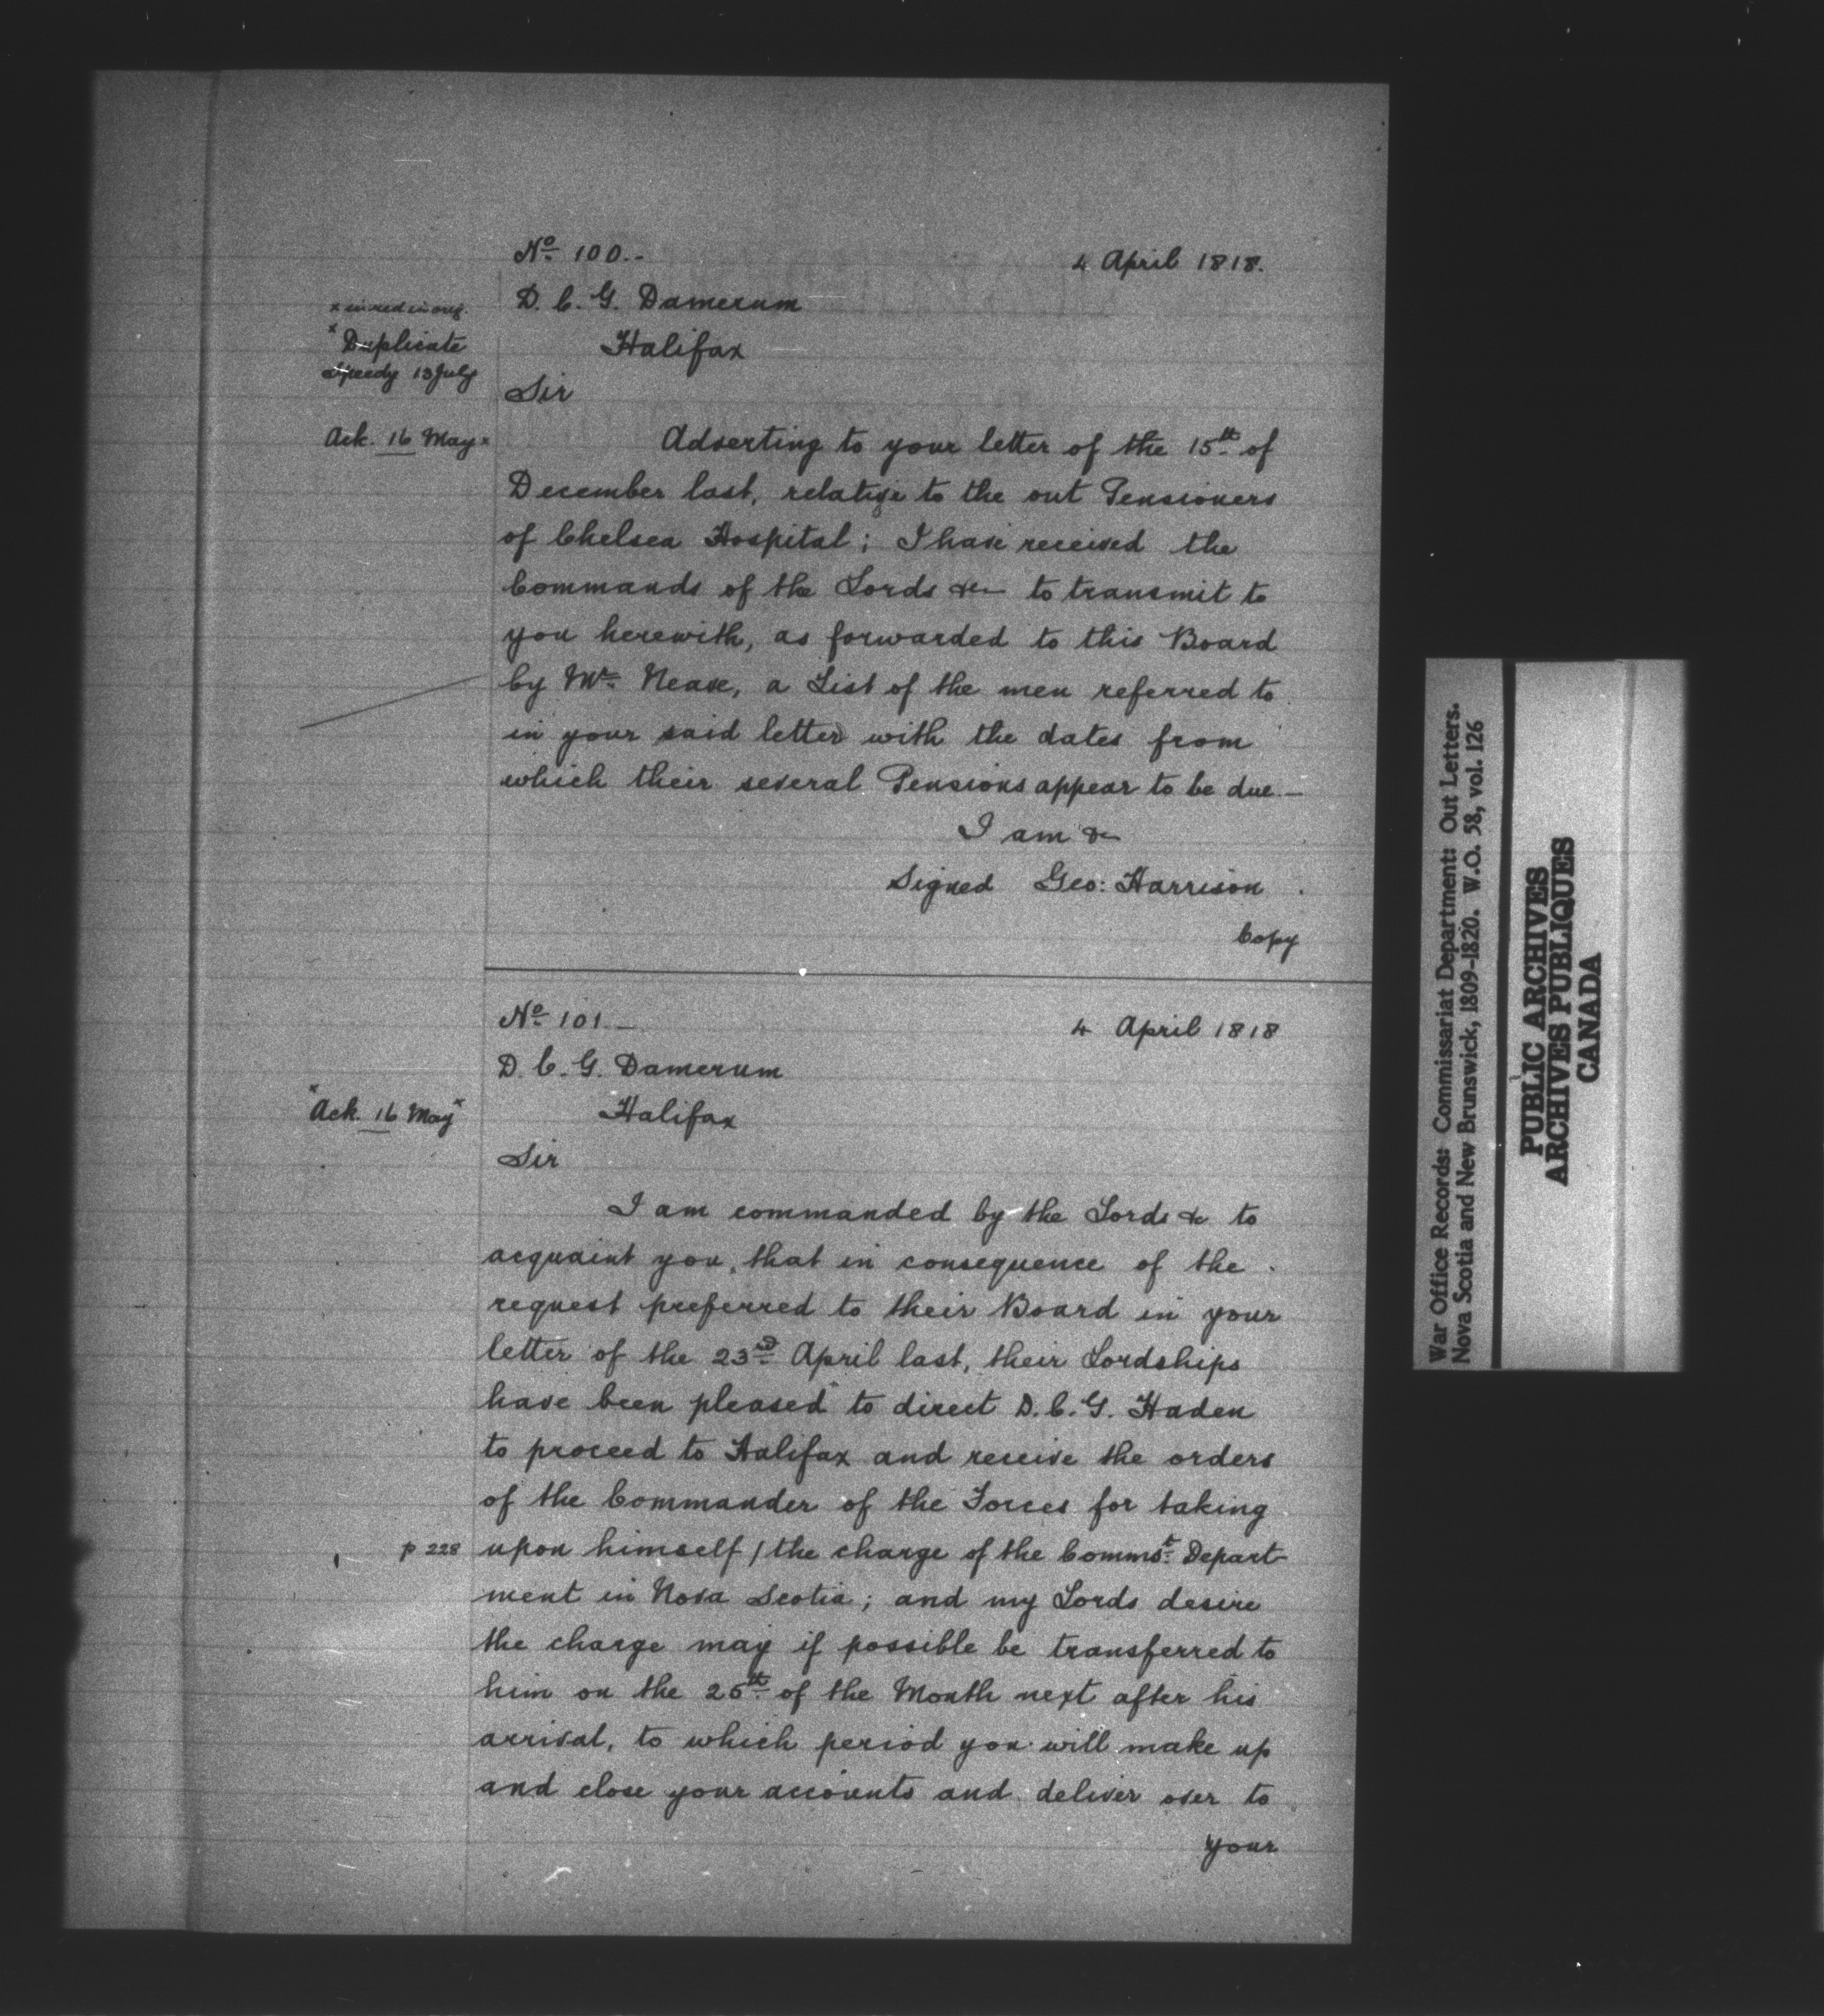 No 100.-
4 April 1818.
D. C. G. Damerum
Halifax
x in red in orig.
x Duplicate
Speedy 13 July
Ack. 16 May x
Sir
Adverting to your letter of the 15th of
December last, relative to the out Pensioners
of Chelsea Hospital; I have received the
Commands of the Lords &c to transmit to
you herewith, as forwarded to this Board
by Mr Neave, a List of the men referred to
in your said letter with the dates from
which their several Pensions appear to be due.-
I am &c
Signed Geo: Harrison
Copy
No 101.-
4 April 1818
D. C. G. Damerum
Halifax
x Ack. 16 May x
Sir
I am commanded by the Lords &c to
acquaint you, that in consequence of the
request preferred to their Board in your
letter of the 23rd April last, their Lordships
have been pleased to direct D. C. G. Haden
to proceed to Halifax and receive the orders
of the Commander of the Forces for taking
p 228
upon himself / the charge of the Commst Depart-
ment in Nova Scotia; and my Lords desire
the charge may if possible be transferred to
him on the 25th of the Month next after his
arrival, to which period you will make up
and close your accounts and deliver over to
your
War Office Records: Commissariat Department: Out Letters.
Nova Scotia and New Brunswick, 1809-1820. W.O. 58, vol. 126
PUBLIC ARCHIVES
ARCHIVES PUBLIQUES
CANADA